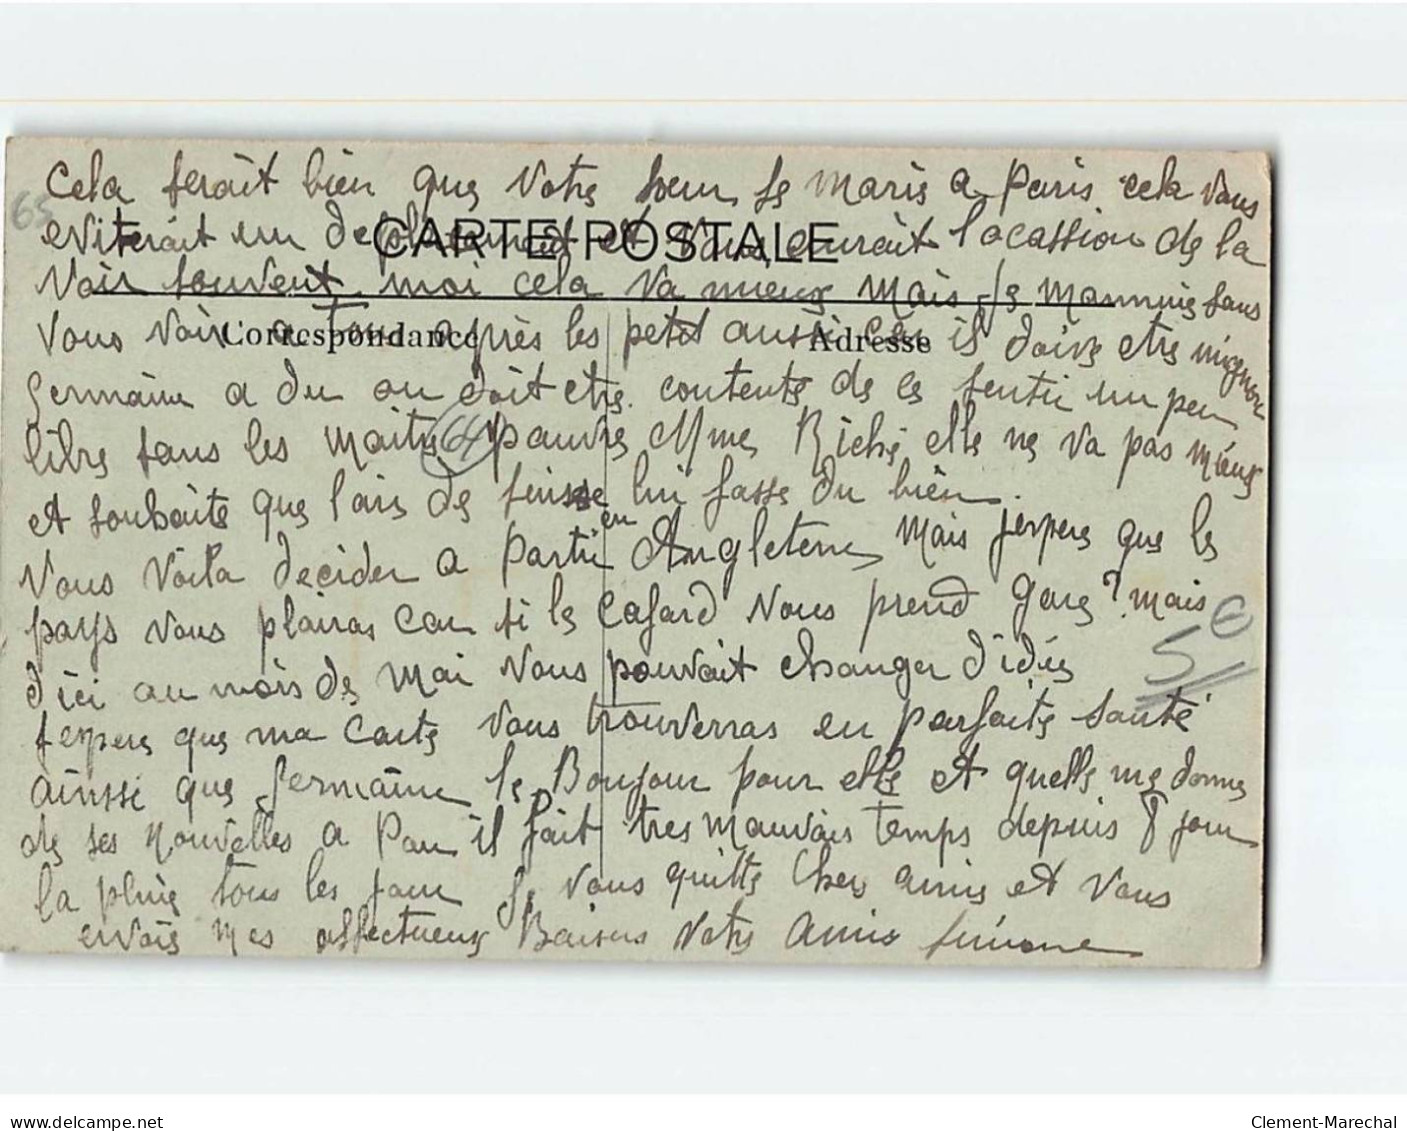 Cela serait bien que votre soeur se maris a Paris cela vous
65
eviterait un deplacement et vous aurait locassion de la
CARTE POSTALE
Voir souvent moi cela va mieux mais je mannuie sans
Vous Voir a Tous après les petit aussi car il doive etre mignon
Correspondance
Adresse
Germaine a du ou doit etre contente de ce sentir un peu
libre sans les maitre pauvre Mme Riché elle ne va pas mieux
64
et souhaite que lair de suisse lui fasse du bien.
Vous Voila decider a partir en Angleterre mais jespere que le
pays vous plairas car si le cafard vous prend gare? mais
5 €
d'ici au mois de mai vous pouvait changer d'idées
jespere que ma carte vous trouverras en parfaite santé
ainssi que Germaine le Bonjour pour elle et quelle me donne
de ses nouvelles a Pau il fait tres mauvais temps depuis 8 jour
la pluie tous les jour Je vous quitte Chers amis et vous
envois mes affectueux Baisers votre amie Simone
www.delcampe.net
Clement-Marechal